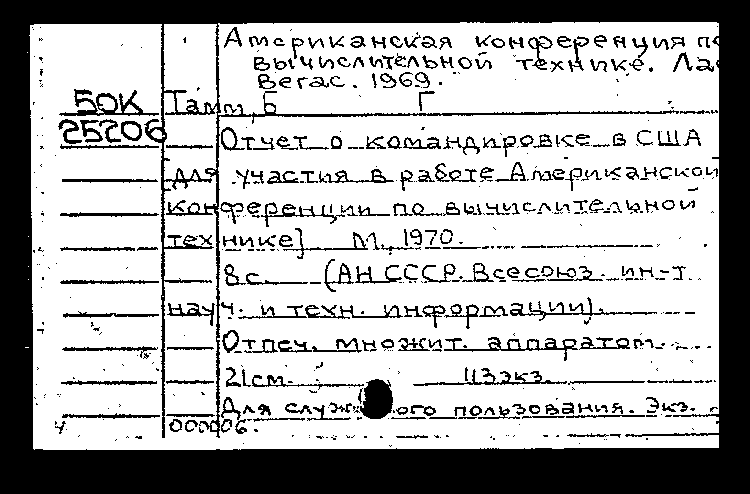 Американская конференция по
вычислительной технике. Лас
Вегас. 1969.
50К Тамм, Б Г
25206 Отчет о командировке в США
[для участия в работе Американской
конференции по вычислительной
технике] М., 1970.
8 с. (АН СССР. Всесоюз. ин-т
науч. и техн. информации).
Отпеч. множит. аппаратом.
21 см. 113 экз.
Для служ ого пользования. Экз.
000006.